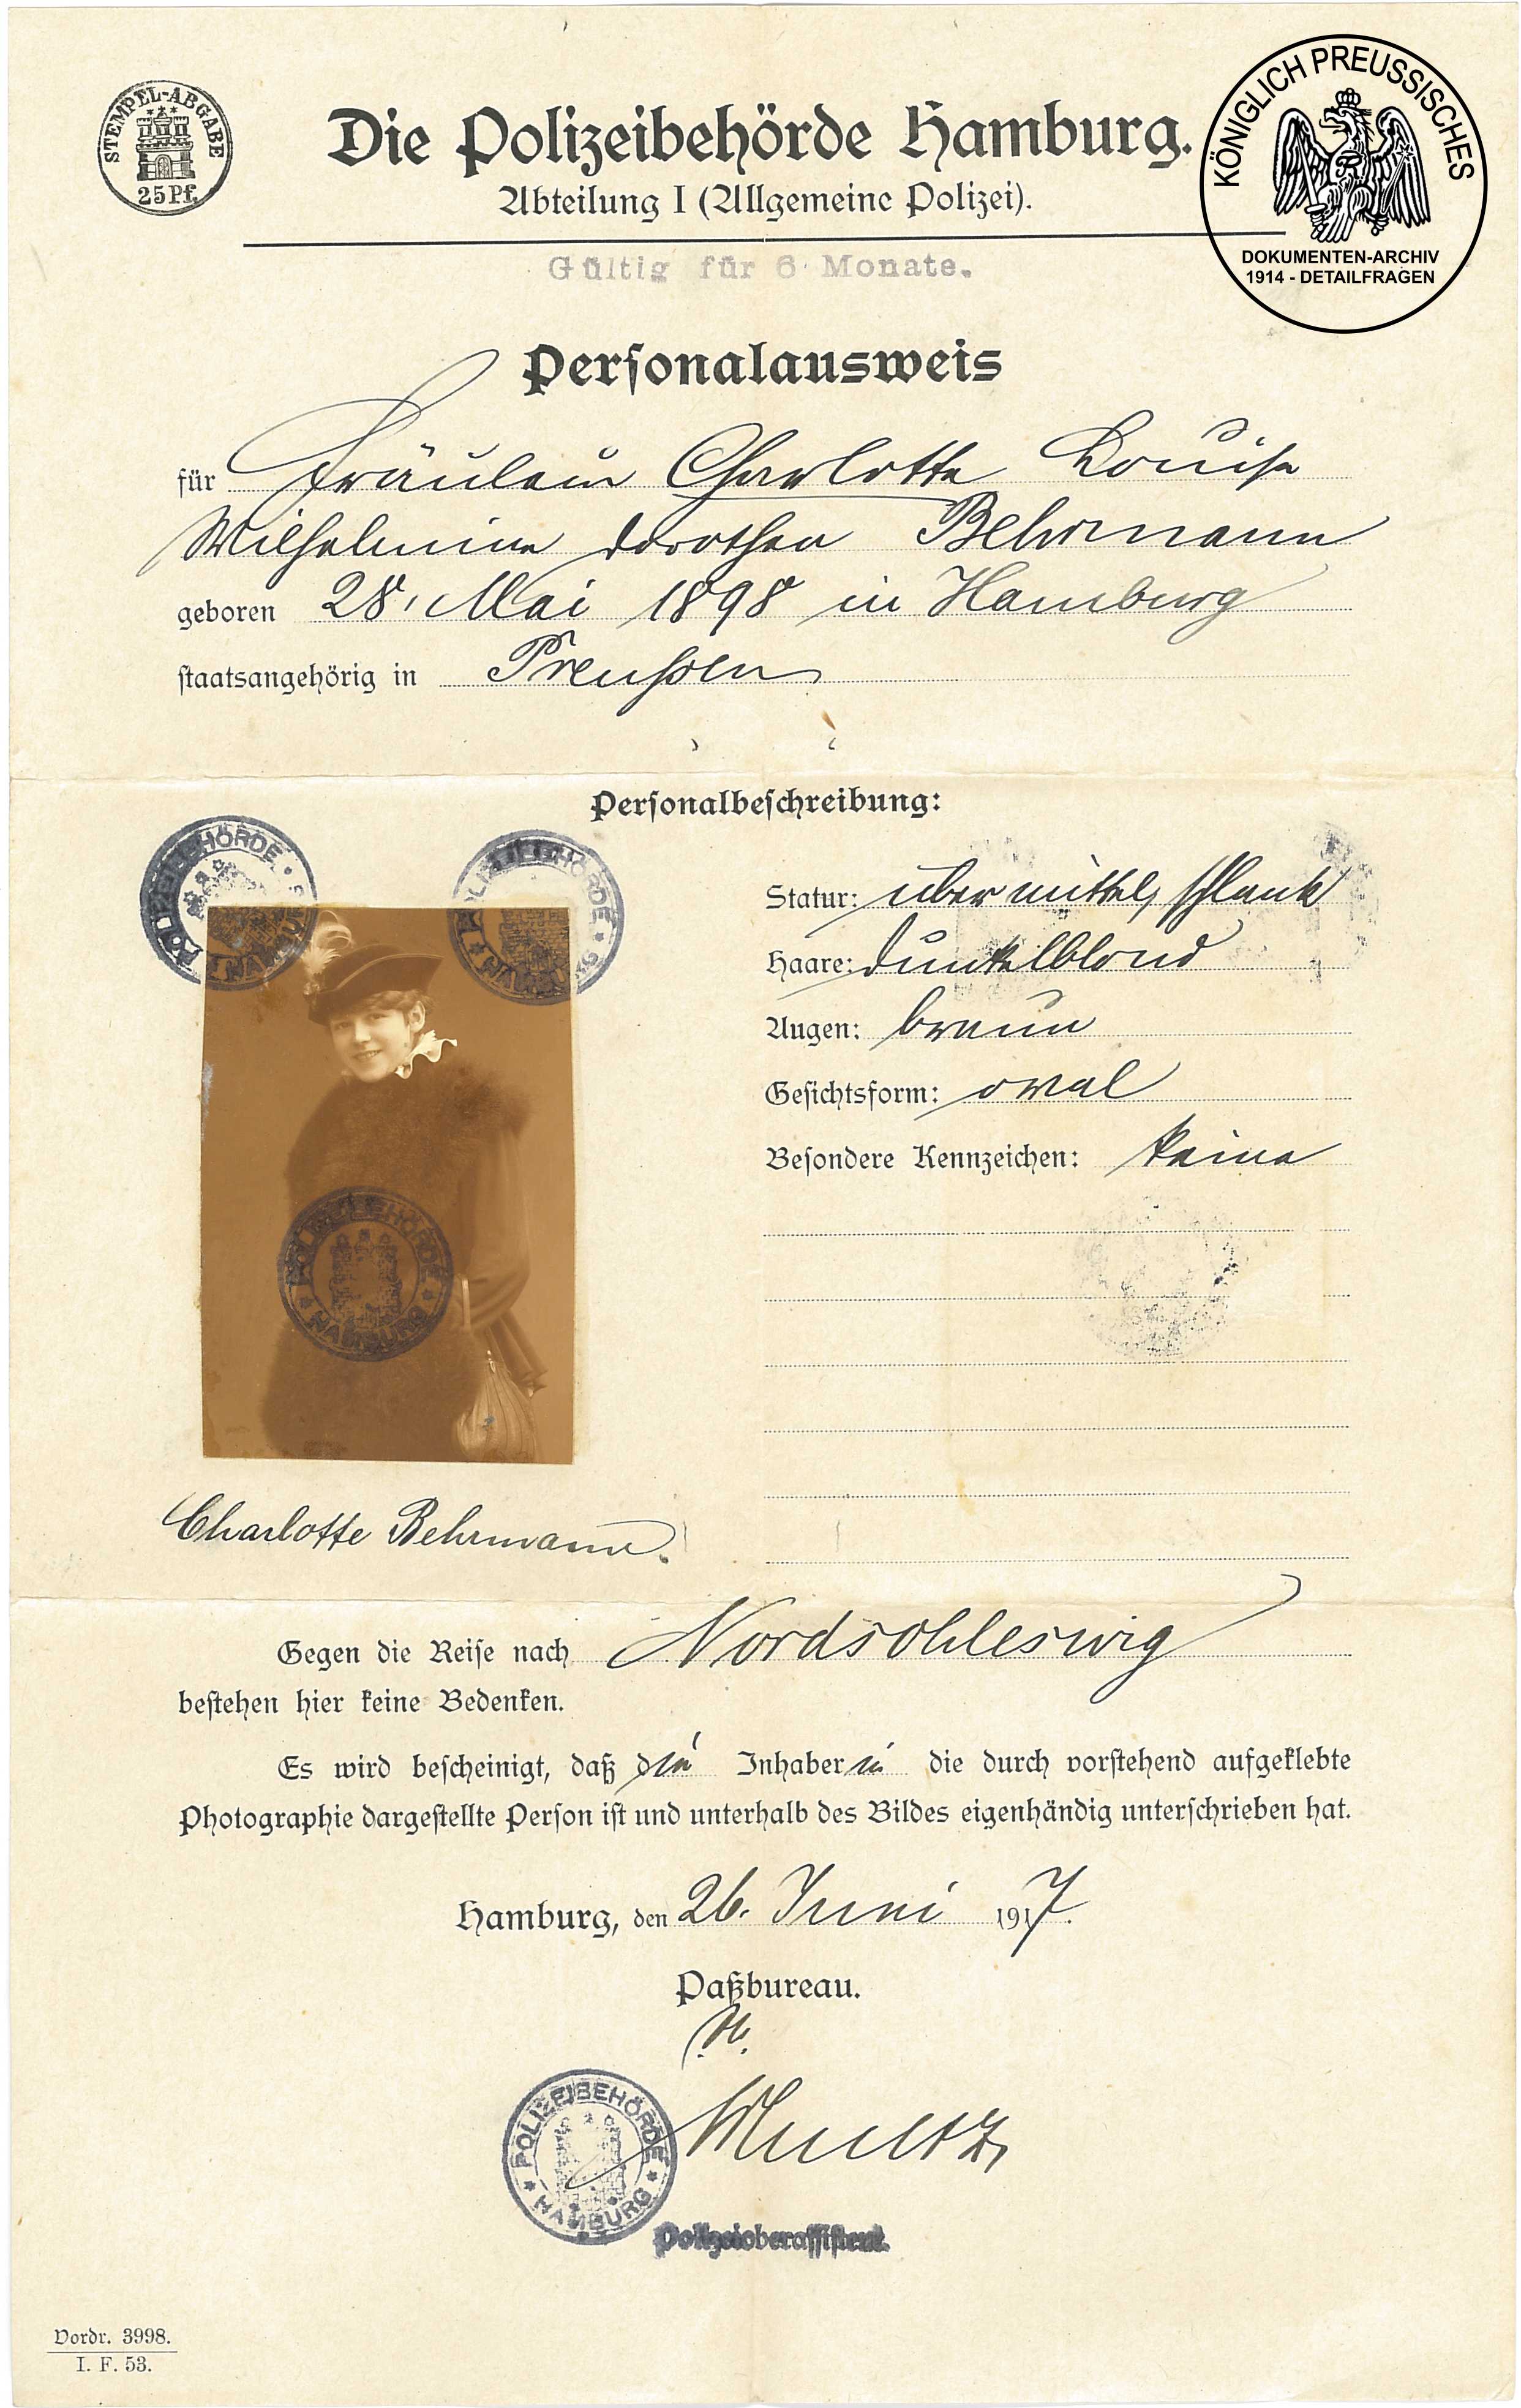 STEMPEL-ABGABE
25 Pf.
Die Polizeibehörde Hamburg.
Abteilung I (Allgemeine Polizei).
KÖNIGLICH PREUSSISCHES
DOKUMENTEN-ARCHIV
1914 - DETAILFRAGEN
Gültig für 6 Monate.
Personalausweis
für Fräulein Charlotte Louise
Wilhelmine Dorothea Behrmann
geboren 28. Mai 1898 in Hamburg
staatsangehörig in Preußen
Personalbeschreibung:
POLIZEIBEHÖRDE HAMBURG
POLIZEIBEHÖRDE HAMBURG
Statur: über mittel, schlank
Haare: dunkelblond
Augen: braun
Gesichtsform: oval
Besondere Kennzeichen: keine
POLIZEIBEHÖRDE HAMBURG
Charlotte Behrmann.
Gegen die Reise nach Nordschleswig
bestehen hier keine Bedenken.
Es wird bescheinigt, daß die Inhaberin die durch vorstehend aufgeklebte
Photographie dargestellte Person ist und unterhalb des Bildes eigenhändig unterschrieben hat.
Hamburg, den 26. Juni 1917.
Paßbureau.
POLIZEIBEHÖRDE HAMBURG
Polizeioberassistent.
Vordr. 3998.
I. F. 53.